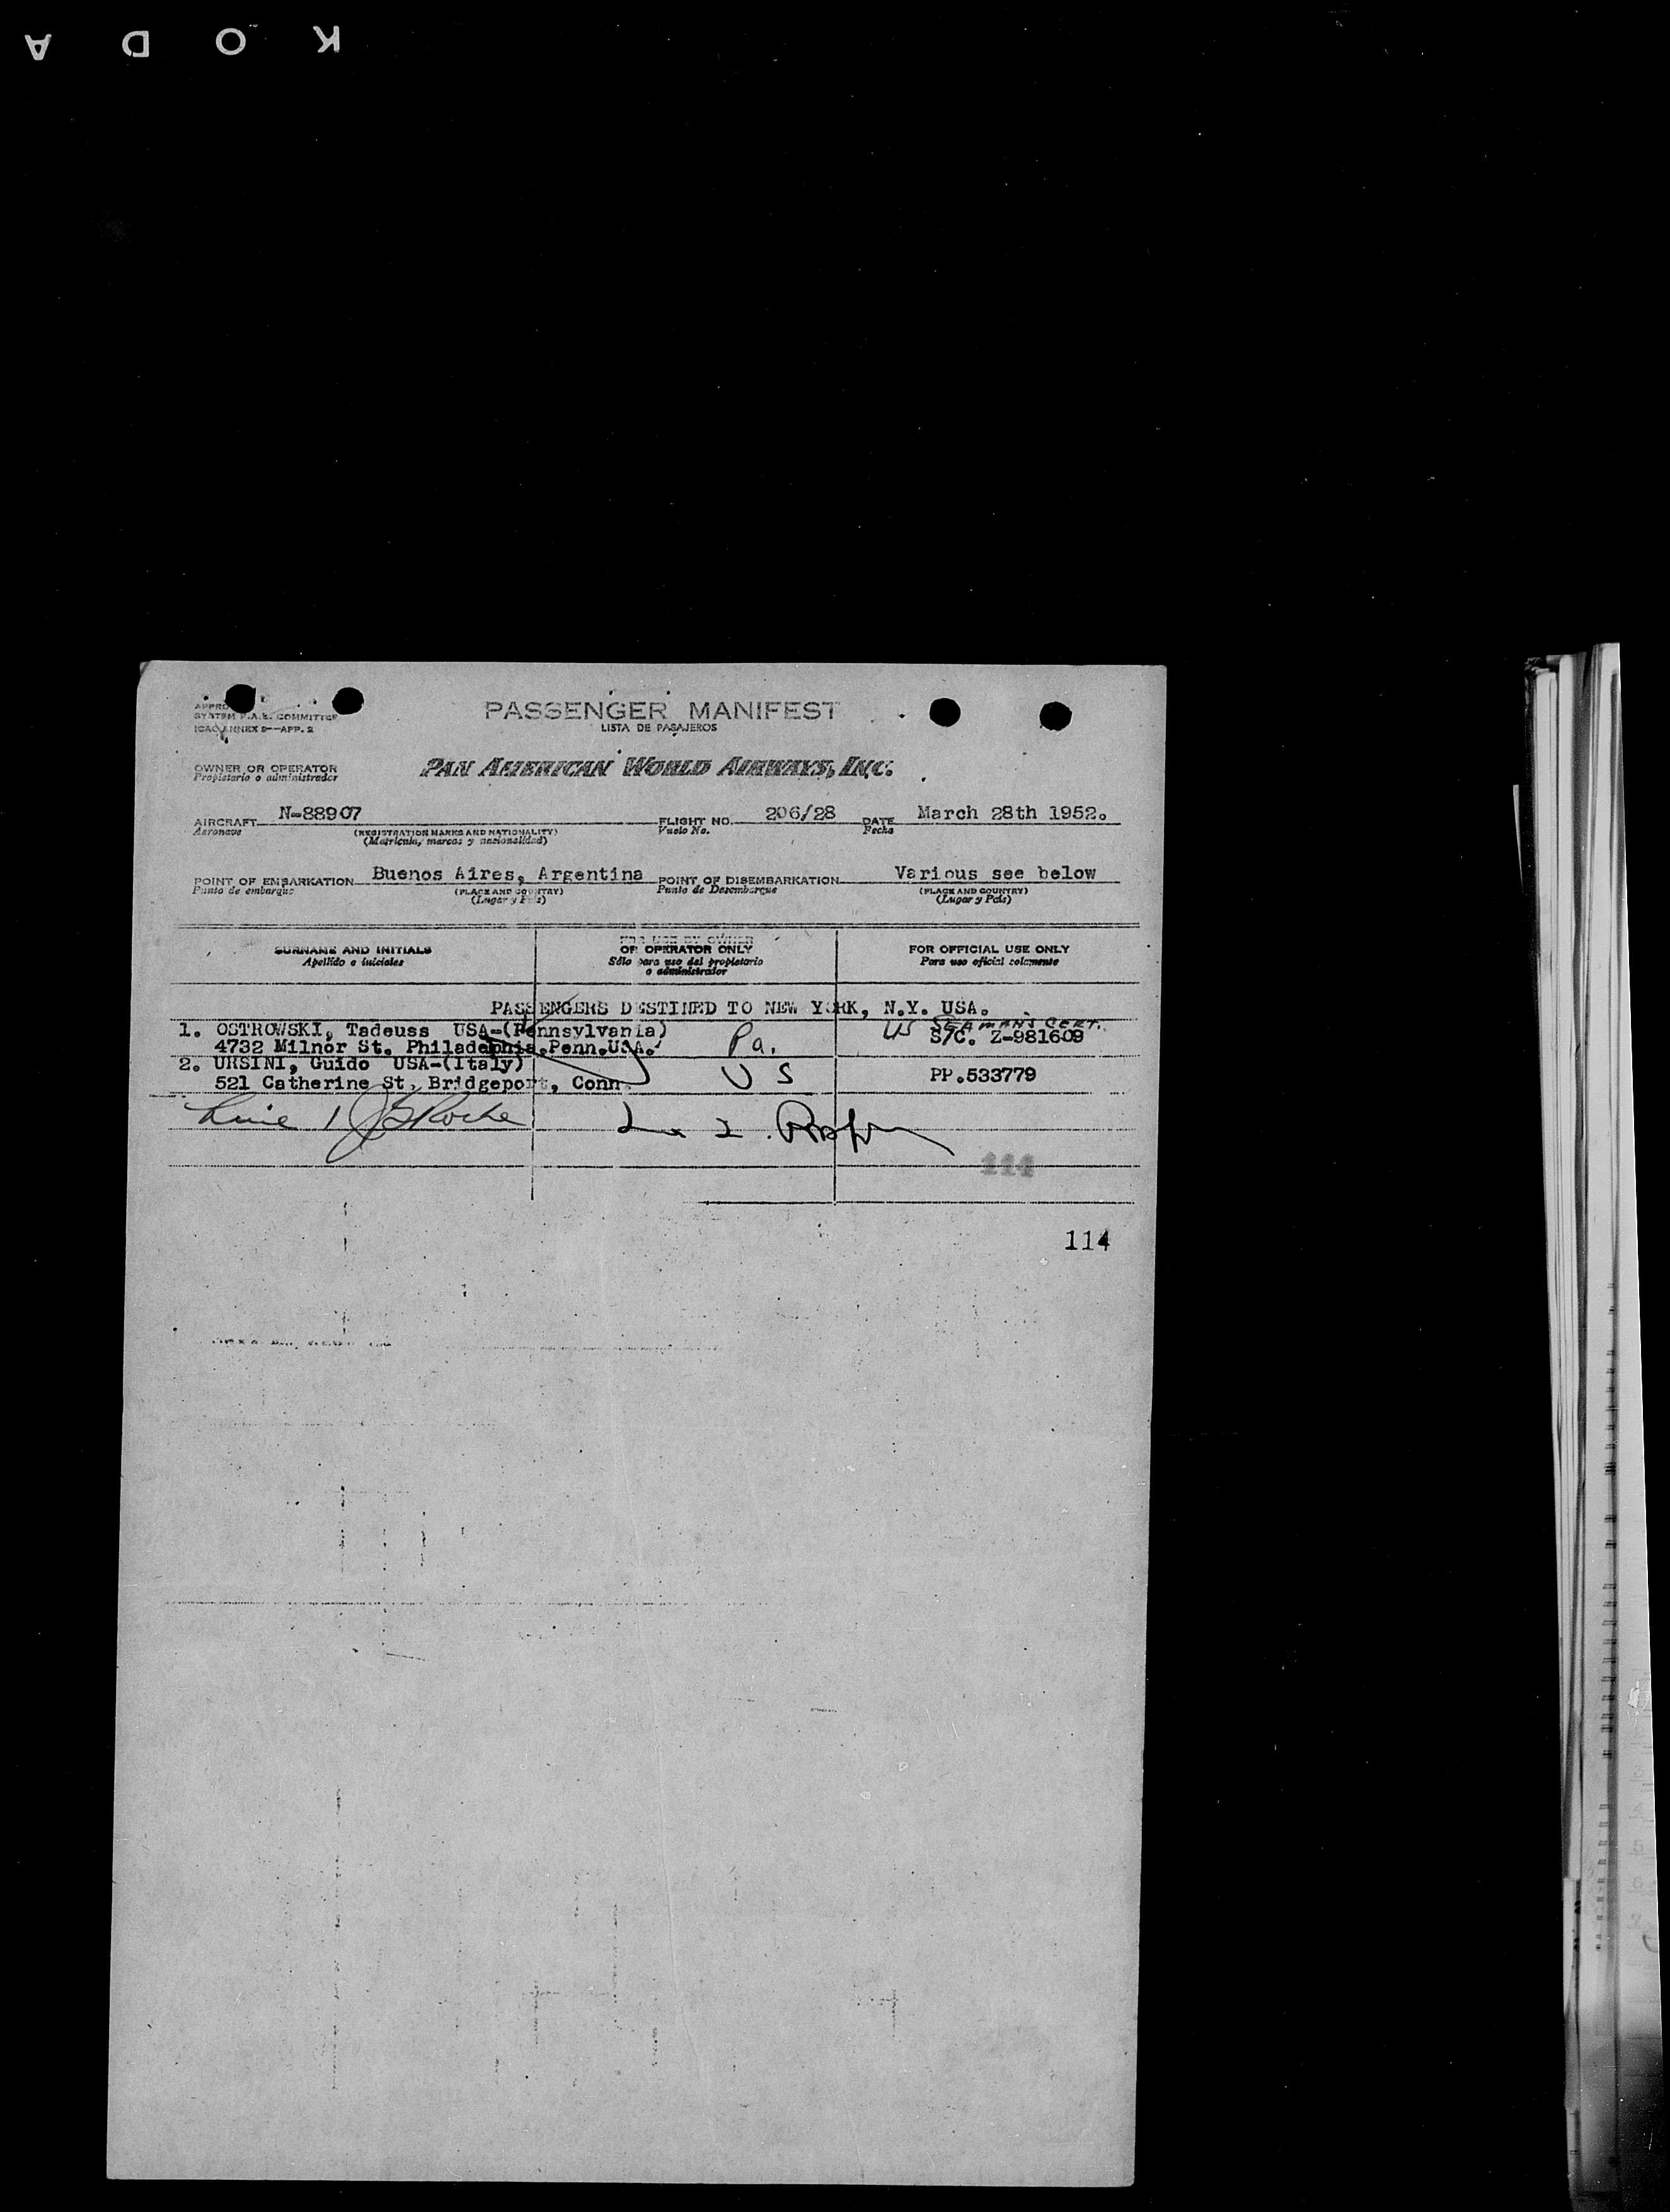 K O D A
PASSENGER MANIFEST
LISTA DE PASAJEROS
SYSTEM F.A.L. COMMITTEE
ICAO ANNEX 9—APP. 2
OWNER OR OPERATOR
Propietario o administrador
PAN AMERICAN WORLD AIRWAYS, INC.
AIRCRAFT N-88907 FLIGHT NO. 206/28 DATE March 28th 1952.
Aeronave (REGISTRATION MARKS AND NATIONALITY) Vuelo No. Fecha
(Matrícula, marcas y nacionalidad)
POINT OF EMBARKATION Buenos Aires, Argentina POINT OF DISEMBARKATION Various see below
Punto de embarque (PLACE AND COUNTRY) Punto de Desembarque (PLACE AND COUNTRY)
(Lugar y País) (Lugar y País)
SURNAME AND INITIALS FOR USE BY OWNER OR OPERATOR ONLY FOR OFFICIAL USE ONLY
Apellido e iniciales Sólo para uso del propietario o administrador Para uso oficial solamente
PASSENGERS DESTINED TO NEW YORK, N.Y. USA.
1. OSTROWSKI, Tadeuss USA-(Pennsylvania) US SEAMANS CERT.
4732 Milnor St. Philadephia.Penn.USA. Pa. S/C. Z-981609
2. URSINI, Guido USA-(Italy)
521 Catherine St, Bridgeport, Conn. US PP.533779
114
114